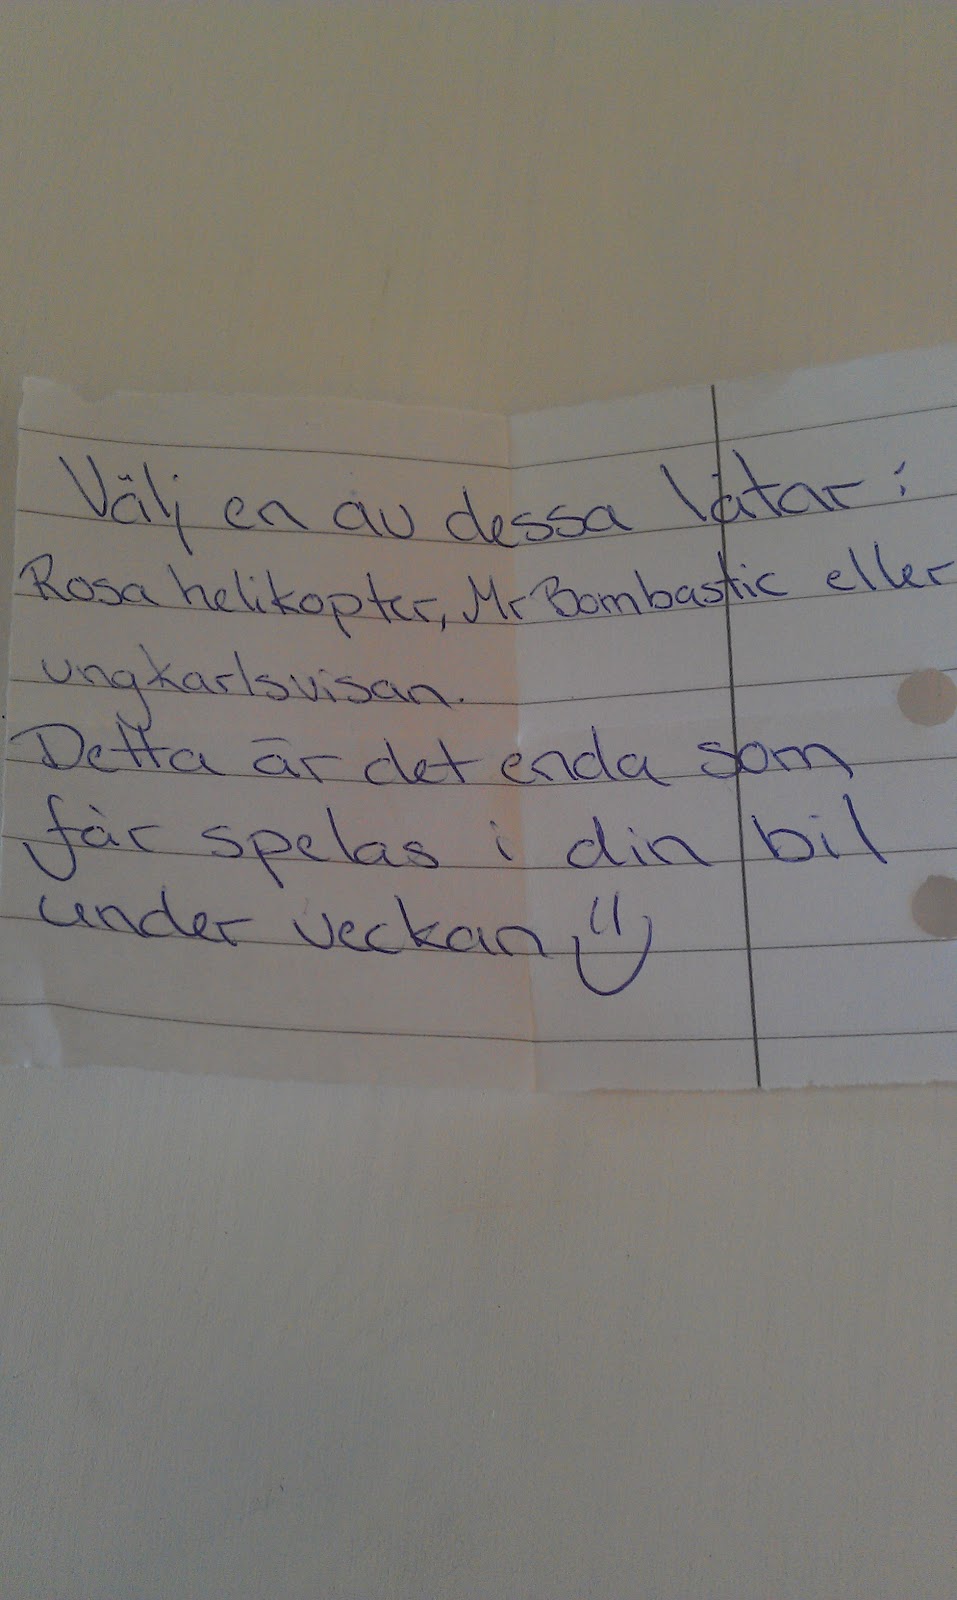 Välj en av dessa låtar:
Rosa helikopter, Mr Bombastic eller
ungkarlsvisan.
Detta är det enda som
får spelas i din bil
under veckan